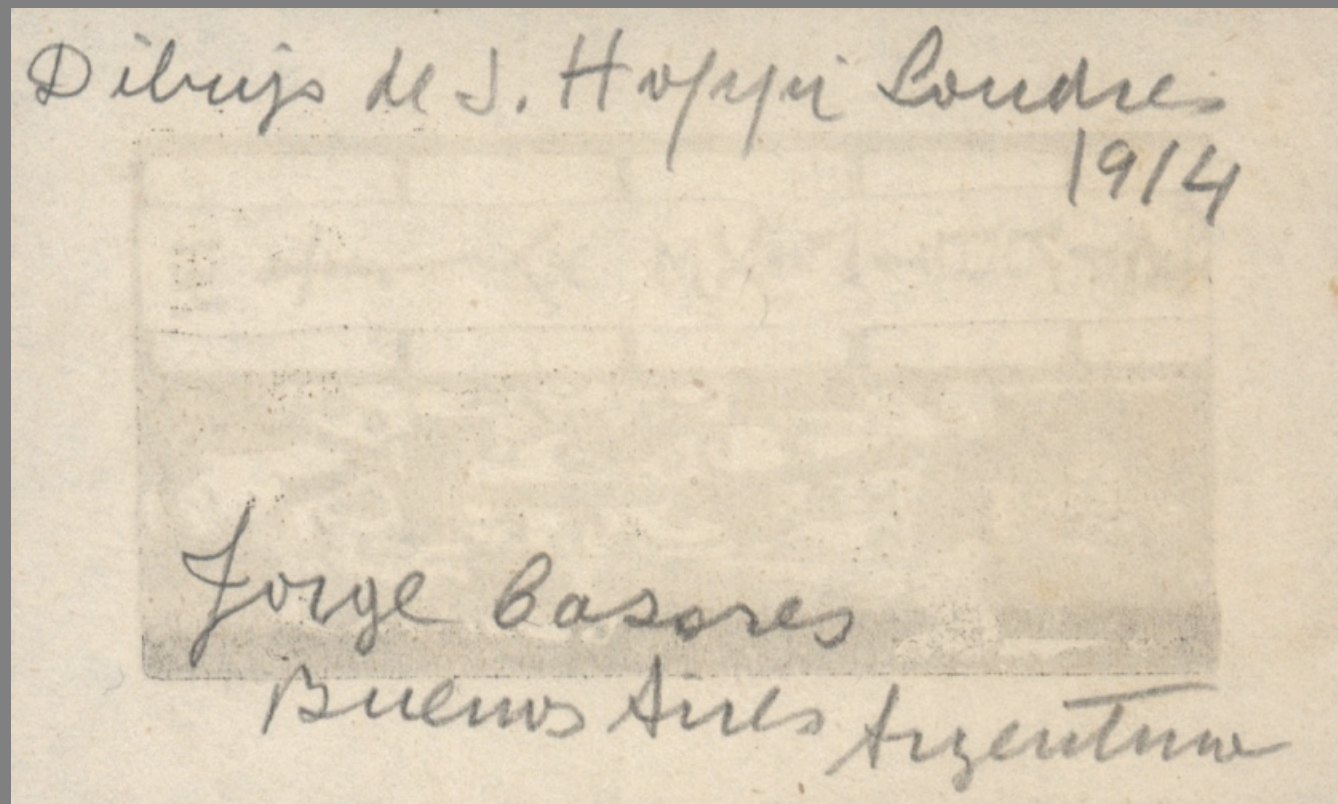 Dibujo de J. Hoppi Londres
1914
Jorge Casares
Buenos Aires Argentina